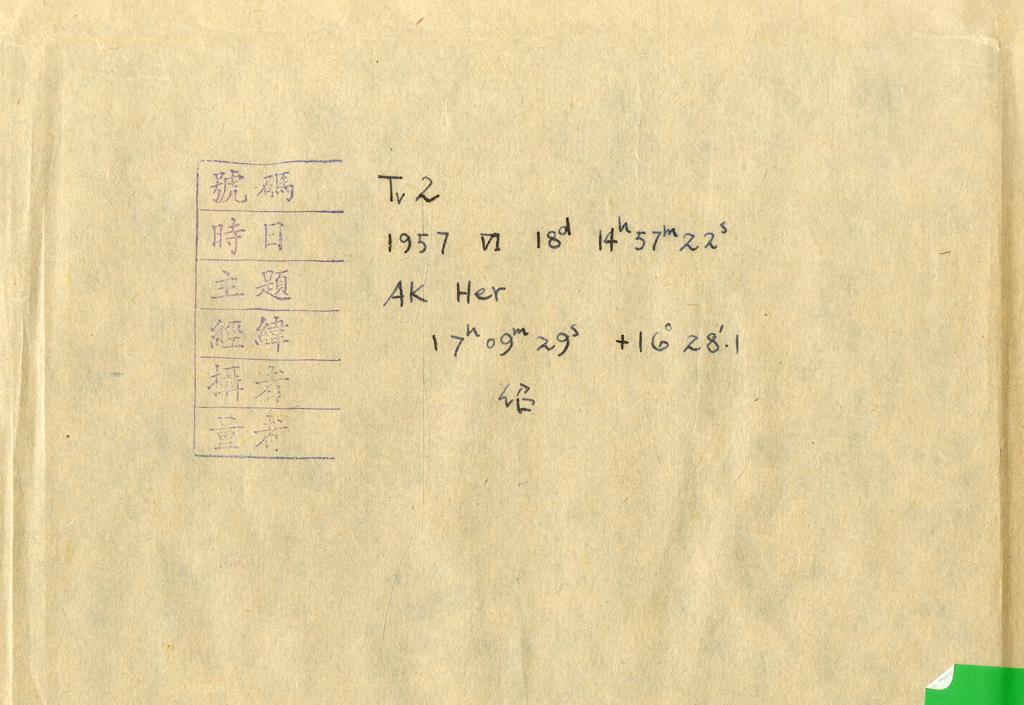 號碼 Tv 2
時日 1957 VI 18ᵈ 14ʰ57ᵐ22ˢ
主題 AK Her
經緯 17ʰ09ᵐ29ˢ +16° 28′.1
攝者
量者